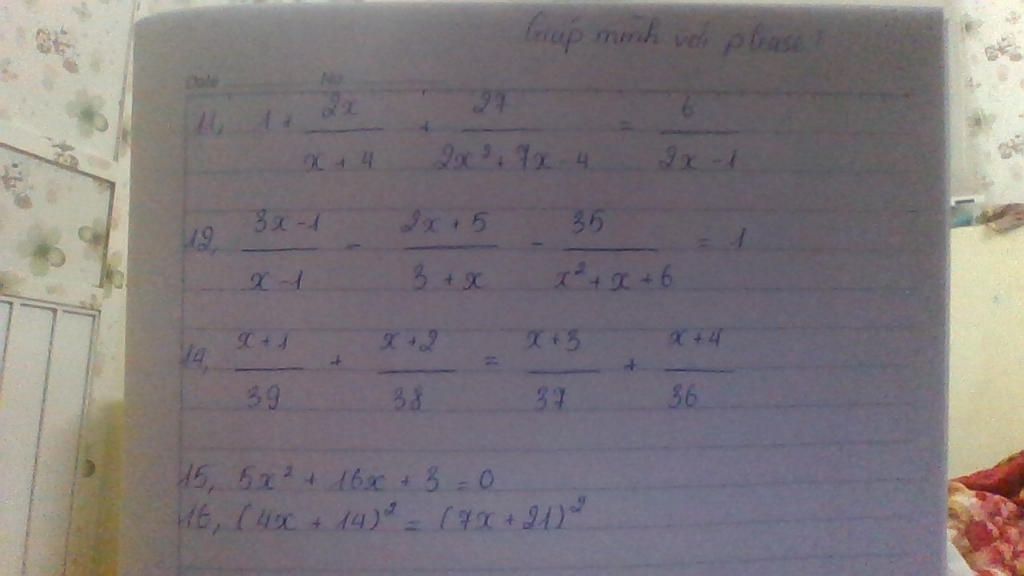 Giúp mình với please!
Date No
11, 1 + 2x/(x + 4) + 27/(2x² + 7x - 4) = 6/(2x - 1)
12, (3x - 1)/(x - 1) - (2x + 5)/(3 + x) - 35/(x² + x + 6) = 1
14, (x + 1)/39 + (x + 2)/38 = (x + 3)/37 + (x + 4)/36
15, 5x² + 16x + 3 = 0
16, (4x + 14)² = (7x + 21)²